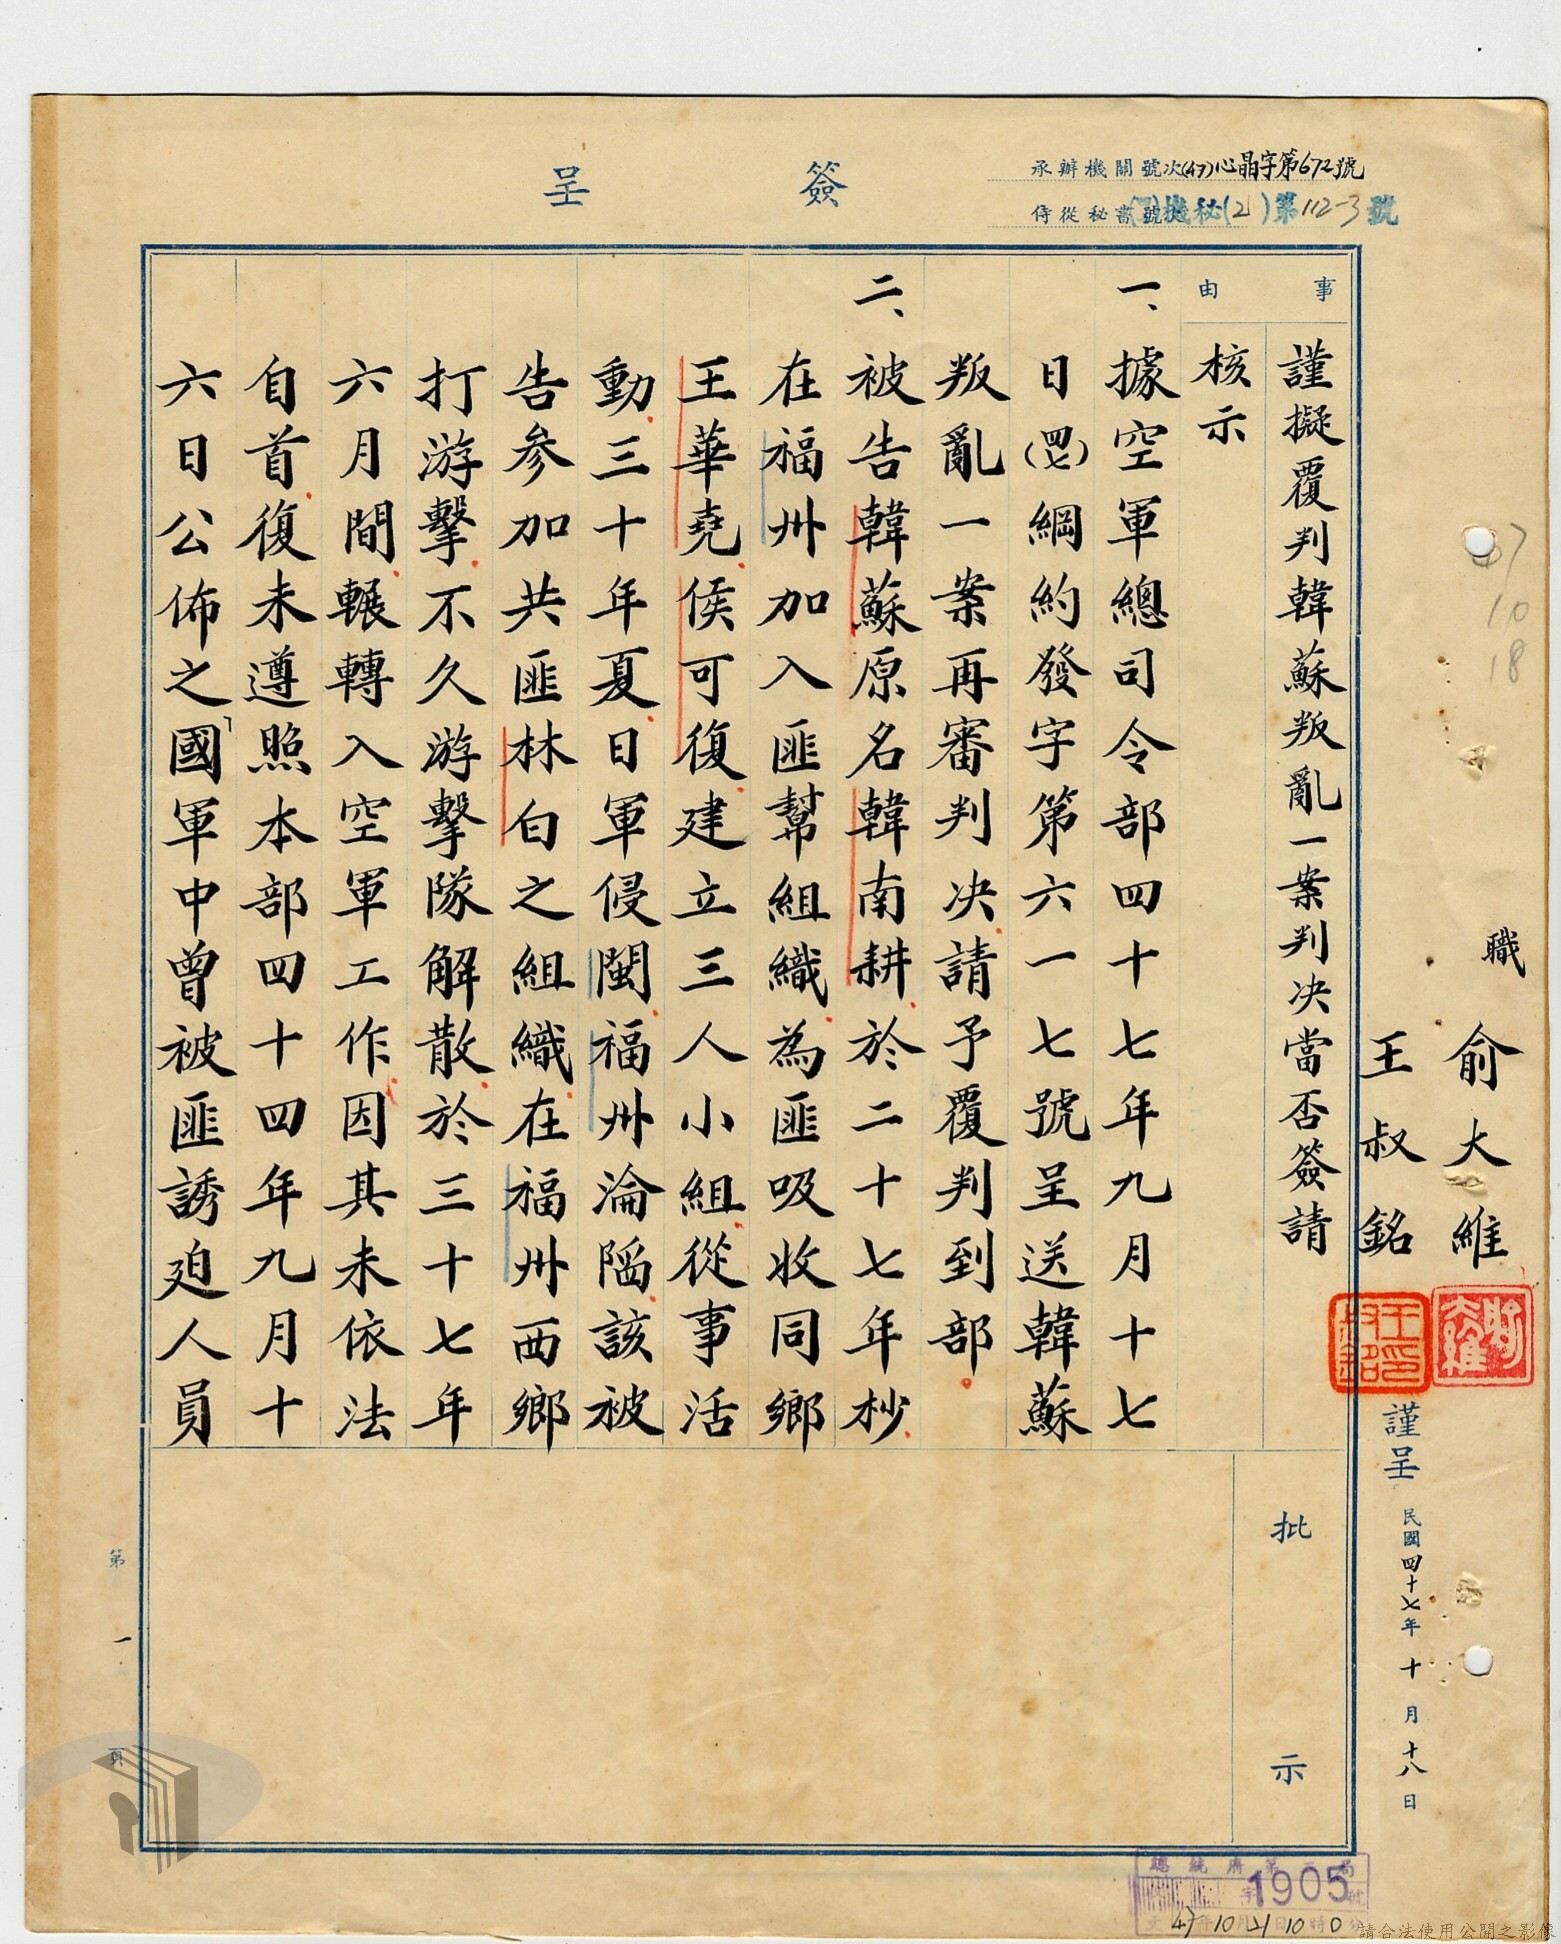 簽呈
承辦機關號次(47)心晶字第672號
侍從秘書號機秘(2)第112-3號
職
俞大維
王叔銘
謹呈
民國四十七年十月十八日
47
10
18
事由
謹擬覆判韓蘇叛亂一案判決當否簽請
核示
一、據空軍總司令部四十七年九月十七
日(四七)綱約發字第六一七號呈送韓蘇
叛亂一案再審判決請予覆判到部
二、被告韓蘇原名韓南耕於二十七年杪
在福州加入匪幫組織為匪吸收同鄉
王華堯侯可復建立三人小組從事活
動三十年夏日軍侵閩福州淪陷該被
告參加共匪林白之組織在福州西鄉
打游擊不久游擊隊解散於三十七年
六月間輾轉入空軍工作因其未依法
自首復未遵照本部四十四年九月十
六日公佈之「國軍中曾被匪誘迫人員
批示
第一頁
總統府第二局
字1905號
文47年10月21日10時0分
請合法使用公開之影像